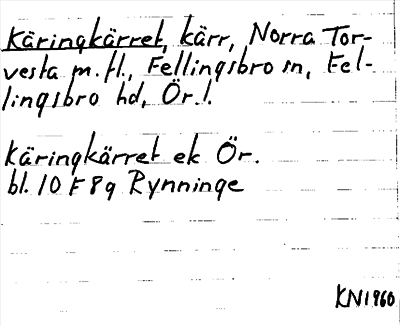 Käringkärret, kärr, Norra Tor-
vesta m.fl., Fellingsbro sn, Fel-
lingsbro hd, Ör.l.
Käringkärret ek Ör.
bl. 10 F 8g Rynninge
KN 1960